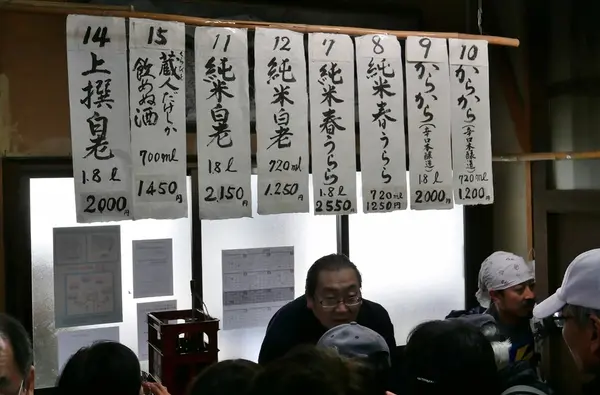 14
上撰白老
1.8ℓ
2000円
15
蔵人だましか
飲めぬ酒
700㎖
1450円
11
純米白老
1.8ℓ
2,150円
12
純米白老
720㎖
1.250円
7
純米春うらら
1.8ℓ
2550円
8
純米春うらら
720㎖
1250円
9
からから
(辛口本醸造)
1.8ℓ
2000円
10
からから
(辛口本醸造)
720㎖
1.200円